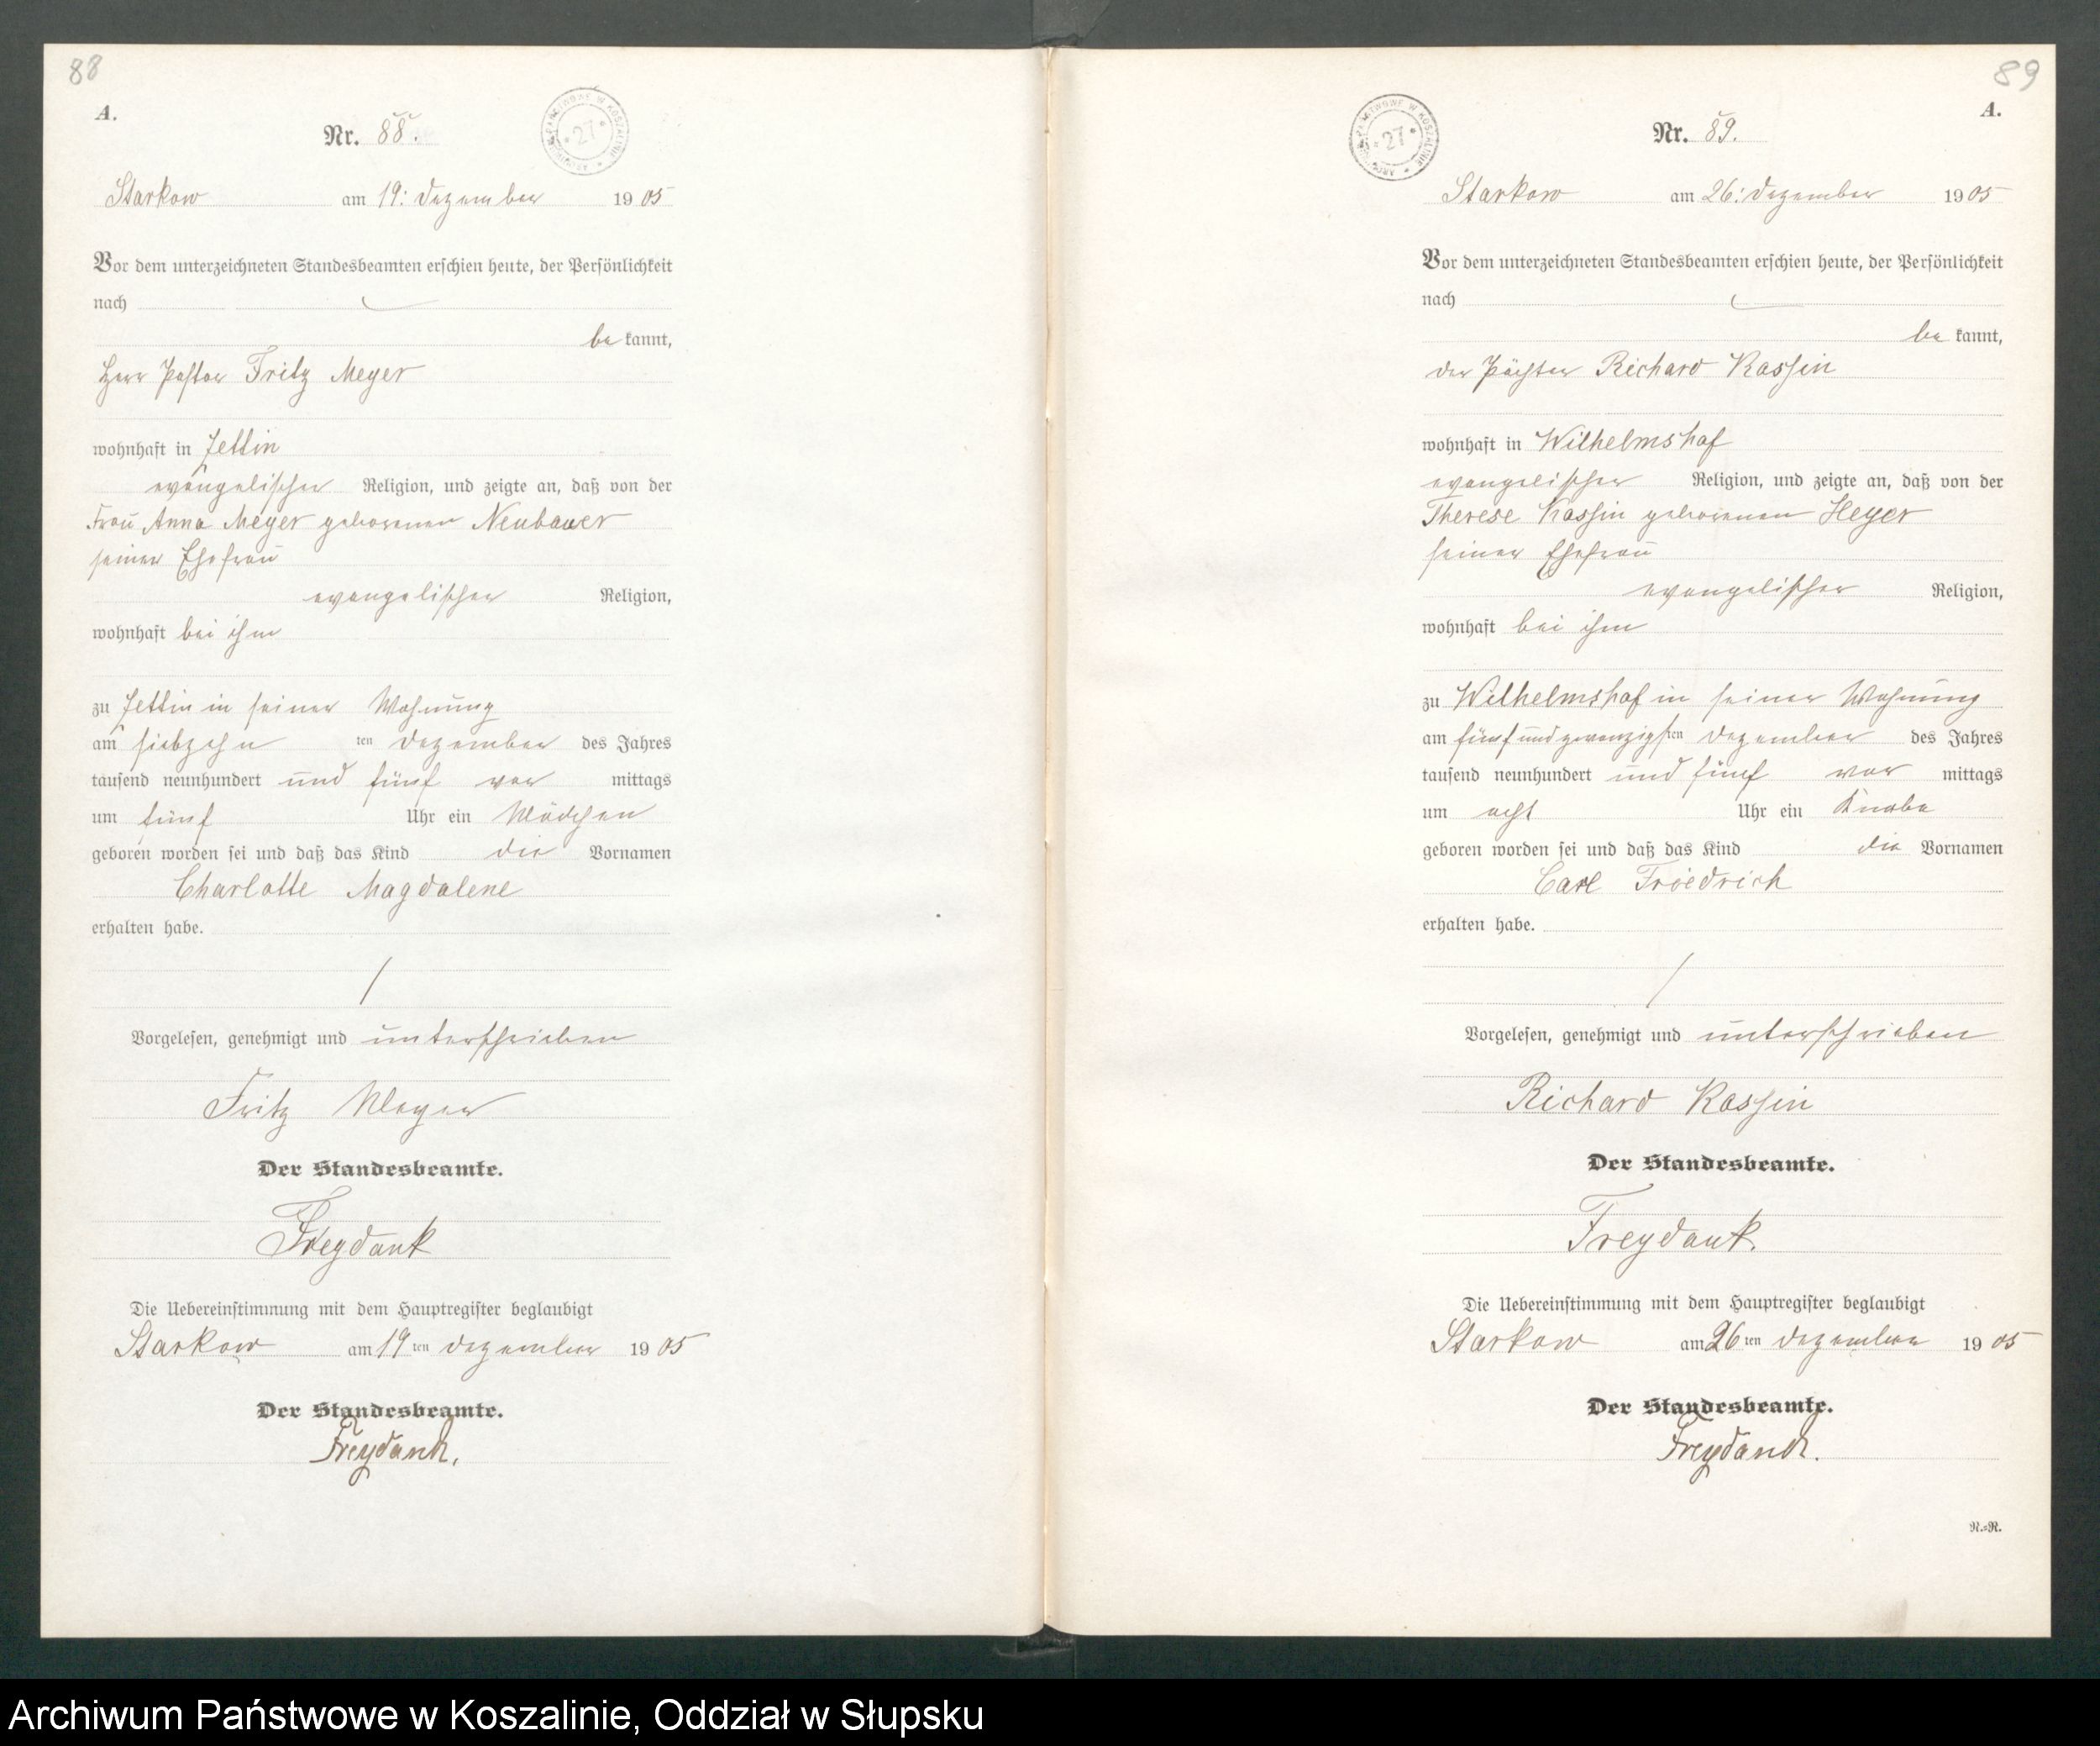 88
A.
Nr. 88.
ARCHIWUM PAŃSTWOWE W KOSZALINIE * 27 *
Starkow am 19. Dezember 1905
Vor dem unterzeichneten Standesbeamten erschien heute, der Persönlichkeit
nach
be kannt,
Herr Pastor Fritz Meyer
wohnhaft in
evangelischer Religion, und zeigte an, daß von der
Frau Anna Meyer geborenen Neubauer
seiner Ehefrau
evangelischer Religion,
wohnhaft bei ihm
zu in seiner Wohnung
am siebzehn ten Dezember des Jahres
tausend neunhundert und fünf vor mittags
um fünf Uhr ein Mädchen
geboren worden sei und daß das Kind die Vornamen
Charlotte Magdalene
erhalten habe.
Vorgelesen, genehmigt und unterschrieben
Fritz Meyer
Der Standesbeamte.
Freydank
Die Uebereinstimmung mit dem Hauptregister beglaubigt
Starkow am 19 ten Dezember 1905
Der Standesbeamte.
Freydank.
89
A.
Nr. 89.
ARCHIWUM PAŃSTWOWE W KOSZALINIE * 27 *
Starkow am 26. Dezember 1905
Vor dem unterzeichneten Standesbeamten erschien heute, der Persönlichkeit
nach
be kannt,
der Pächter Richard Kassin
wohnhaft in Wilhelmshof
evangelischer Religion, und zeigte an, daß von der
Therese Kassin geborenen Heyer
seiner Ehefrau
evangelischer Religion,
wohnhaft bei ihm
zu Wilhelmshof in seiner Wohnung
am fünf und zwanzigsten Dezember des Jahres
tausend neunhundert und fünf vor mittags
um acht Uhr ein Knabe
geboren worden sei und daß das Kind die Vornamen
Carl Friedrich
erhalten habe.
Vorgelesen, genehmigt und unterschrieben
Richard Kassin
Der Standesbeamte.
Freydank.
Die Uebereinstimmung mit dem Hauptregister beglaubigt
Starkow am 26 ten Dezember 1905
Der Standesbeamte.
Freydank.
N.=R.
Archiwum Państwowe w Koszalinie, Oddział w Słupsku